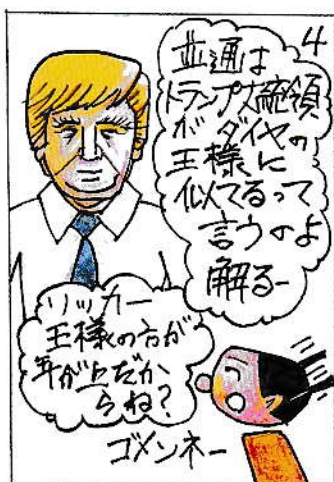 4
並通は
トランプ大統領
が ダイヤの
王様に
似てるって
言うのよ
解るー
ソッカー
王様の方が
年が上だか
らね?
ゴメンネー